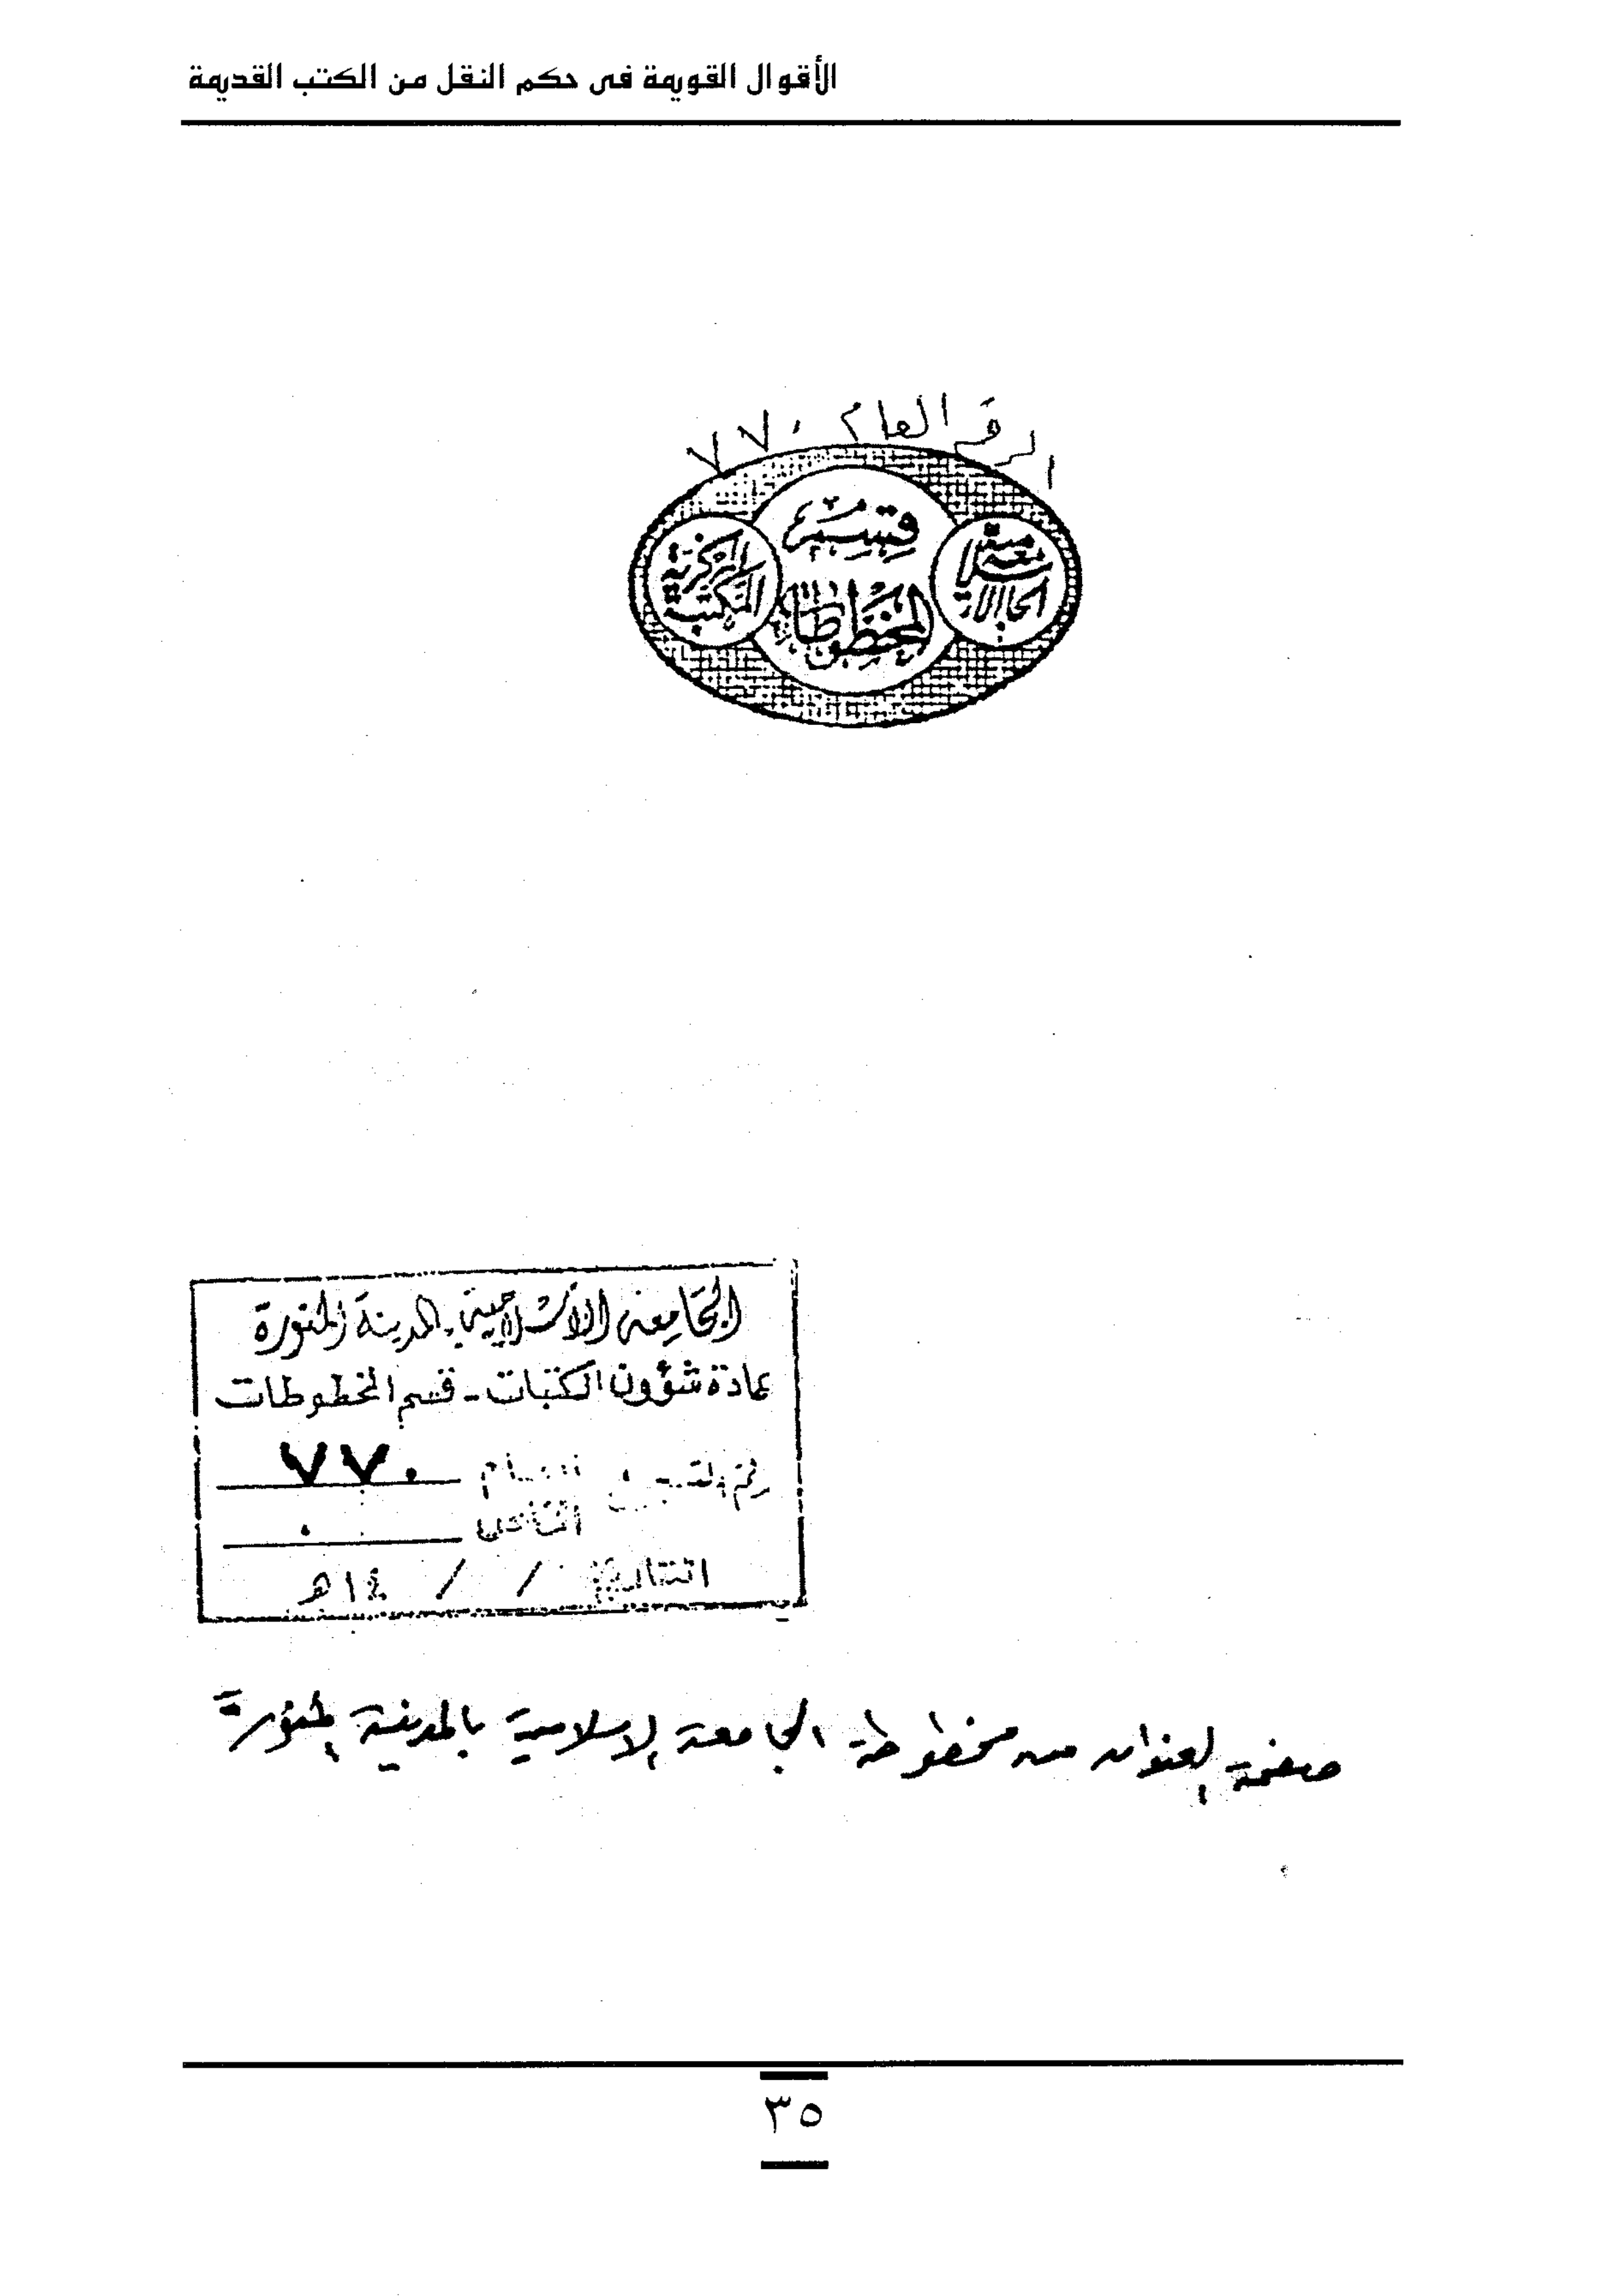 الأقوال القويمة فى حكم النقل من الكتب القديمة
الرقم العام ٧٧٠
الجامعة الإسلامية
قسم
المخطوطات
المكتبة المركزية
الجامعة الإسلامية بالمدينة المنورة
عمادة شؤون المكتبات - قسم المخطوطات
رقم التسجيل العام ٧٧٠
الخاص
التاريخ / / ١٤هـ
صفحة العنوان من مخطوطة الجامعة الإسلامية بالمدينة المنورة
٣٥